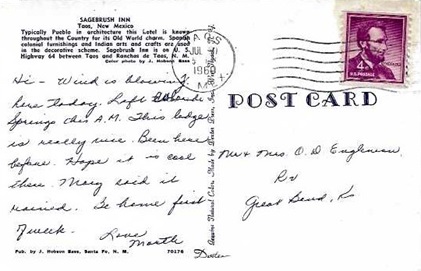 SAGEBRUSH INN
Taos, New Mexico
Typically Pueblo in architecture this Hotel is known
throughout the Country for its Old World charm. Spanish
colonial furnishings and Indian arts and crafts are used
in the decorative scheme. Sagebrush Inn is on U. S.
Highway 64 between Taos and Ranchos de Taos, N. M.
TAOS
JUL
196
N. M.
4¢
U.S. POSTAGE
POST CARD
Hi - Wind is blowing
here today. Left
Springs this A.M. This lodge
is really nice. Been here
before. Hope it is cool
there. Mary said it
rained. Be home first
of week. Love
Mr & Mrs. O. D.
Great Bend, Ks
Pub. by J. Hobson Bass, Santa Fe, N. M.
70176
Genuine Natural Color. Made by Dexter Press, Inc.